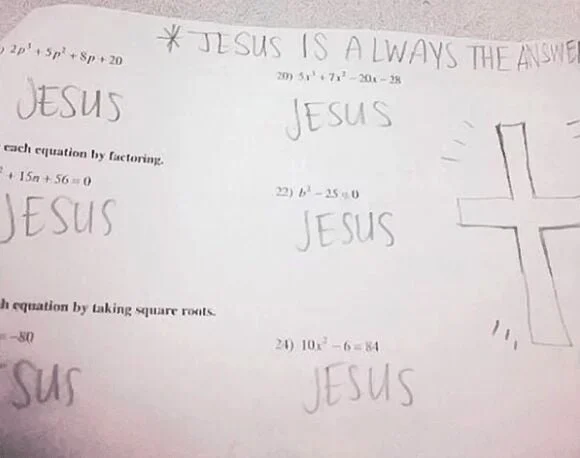 * JESUS IS ALWAYS THE ANSWE
2p³ + 5p² + 8p + 20
20) 5x³ + 7x² − 20x − 28
JESUS
JESUS
each equation by factoring.
² + 15n + 56 = 0
22) b² − 25 = 0
JESUS
JESUS
h equation by taking square roots.
= −80
24) 10x² − 6 = 84
SUS
JESUS